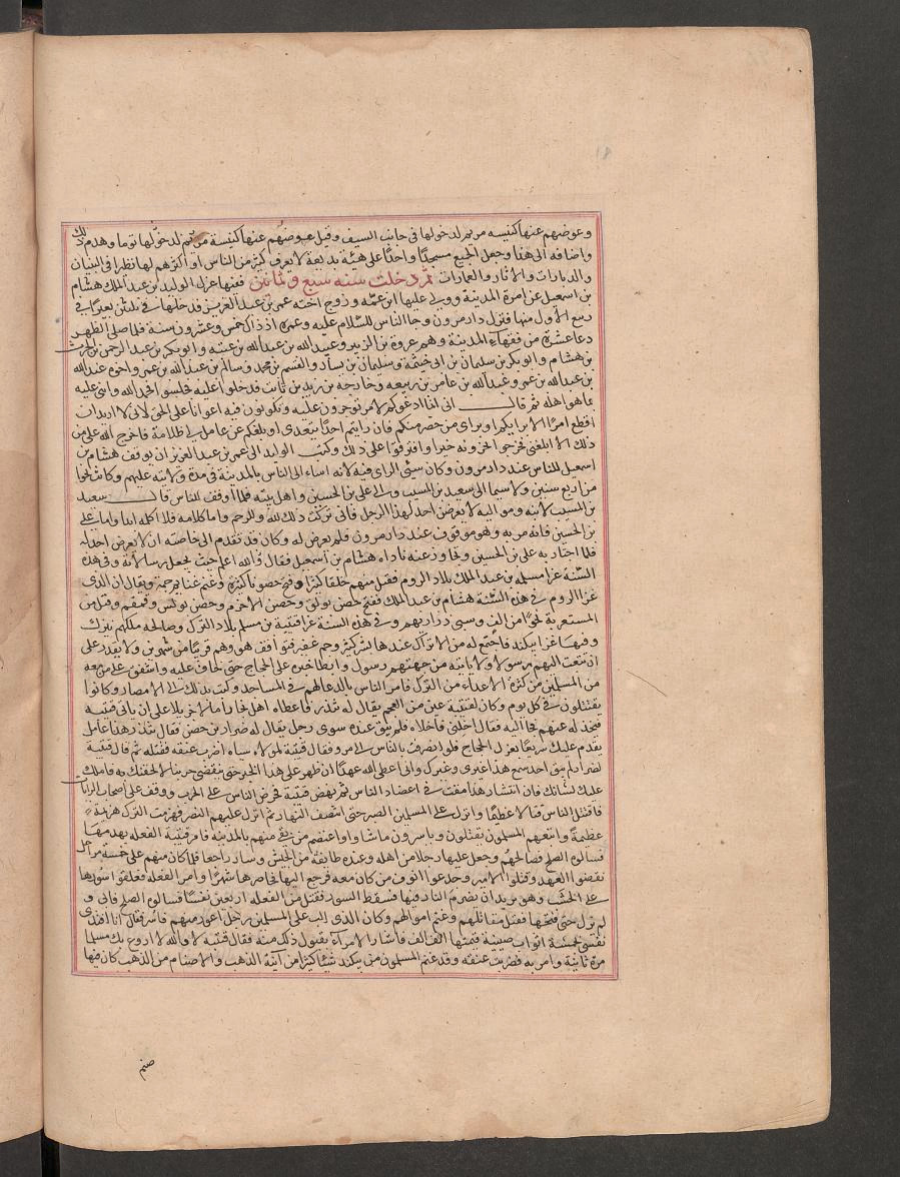 وعوضهم عنها كنيسه مريم لدخولها في جانب السيف وقيل عوضهم عنها كنيسة توما وهدم ذلك
واضافه الى هذا وجعل الجميع مسجدا واحدا على هيئة بديعة لا يعرف كثير من الناس او اكثرهم لها نظيرا في البنيان
والديارات والاثار والعمارات ثم دخلت سنه سبع وثمانين ففيها عزل الوليد بن عبد الملك هشام
بن اسمعيل عن امرة المدينة وولى عليها ابن عمه وزوج اخته عمر بن عبد العزيز فدخلها في ثلثين بعيرا في
ربيع الاول منها فنزل دار مرون وجا الناس للسلام عليه وعمره اذ ذاك خمس وعشرون سنة فلما صلى الظهر
دعا عشرة من فقهاء المدينة وهم عروة بن الزبير وعبيد الله بن عبد الله بن عتبه وابو بكر بن عبد الرحمن بن الحرث
بن هشام وابو بكر بن سلمان بن ابي خيثمة وسليمان بن يسار والقسم بن محمد وسالم بن عبد الله بن عمر واخوه عبد الله
بن عبد الله بن عمر وعبد الله بن عامر بن ربيعه وخارجه بن زيد بن ثابت فدخلوا عليه فجلسوا فحمد الله واثنى عليه
بما هو اهله ثم قال اني انما ادعوكم لامر توجرون عليه وتكونون فيه اعوانا على الحق لاني لا اريد ان
اقطع امرا الا برايكم او براي من حضر منكم فان رايتم احدا يتعدى او بلغكم عن عامل لي ظلامة فاحرج الله على من
ذلك الا ابلغني فخرجوا يجزونه خيرا وافترقوا على ذلك وكتب الوليد الى عمر بن عبد العزيز ان يوقف هشام بن
اسمعيل للناس عند دار مرون وكان سيئ الراي فيه لانه اساء الى الناس بالمدينة في مدة ولايته عليهم وكانت نحوا
من اربع سنين ولا سيما الى سعيد بن المسيب والى علي بن الحسين واهل بيته فلما اوقف للناس قال سعيد
بن المسيب لابنه ومواليه لا يعرض احد لهذا الرجل فاني تركت ذلك لله وللرحم واما كلامه فلا اكلمه ابدا واما علي
بن الحسين فانه مر به وهو موقوف عند دار مرون فلم يعرض له وكان قد تقدم الى خاصته ان لا يعرض احد له
فلما اجتاز به علي بن الحسين وتجاوز عنه ناداه هشام بن اسمعيل فقال الله اعلم حيث يجعل رسالاته وفي هذه
السنة غزا مسلمه بن عبد الملك بلاد الروم فقتل منهم خلقا كثيرا وفتح حصونا كثيرة وغنم غنايم جمة ويقال ان الذي
غزا الروم في هذه السنة هشام بن عبد الملك ففتح حصن بولق وحصن الاخرم وحصن بولس وقمقم وقتل من
المستعربة نحوا من الف وسبى ذراريهم وفي هذه السنة غزا قتيبة بن مسلم بلاد الترك وصالحه ملكهم نيزك
وفيها غزا بيكند فاجتمع له من الاتراك عندها بشر كثير وجم غفير فتواقف هو وهم قريبا من شهرين ولا يقدر على
ان يبعث اليهم رسولا ولا ياتيه من جهتهم رسول وابطا خبره على الحجاج حتى خاف عليه واشفق على من معه
من المسلمين من كثرة الاعداء من الترك فامر الناس بالدعا لهم في المساجد وكتب بذلك الى الامصار وكانوا
يقتتلون في كل يوم وكان لقتيبة عين من العجم يقال له تنذر فاعطاه اهل بخارا مالا جزيلا على ان ياتي قتيبة
فيخذله عنهم فجا اليه فقال اخلني فاخلاه فلم يبق عنده سوى رجل يقال له ضرار بن حصن فقال تنذر هذا عامل
يقدم عليك سريعا بعزل الحجاج فلو انصرفت بالناس الى مرو فقال قتيبة لمولاه سياه اضرب عنقه فقتله ثم قال قتيبة
لضرار لم يبق احد سمع هذا غيري وغيرك واني اعطي الله عهدا ان ظهر على هذا الخبر حتى ينقضي حربنا لالحقنك به فاملك
عليك لسانك فان انتشار هذا مفت في اعضاد الناس ثم نهض قتيبة فحرض الناس على الحرب ووقف على اصحاب الرايات
فاقتتل الناس قتالا عظيما وانزل على المسلمين الصبر حتى انتصف النهار ثم انزل عليهم النصر فهزمت الترك هزيمة
عظيمة واتبعهم المسلمون يقتلون وياسرون ما شاوا واعتصم من بقي منهم بالمدينة فامر قتيبة الفعله بهدمها
فسالوه الصلح فصالحهم وجعل عليها رجلا من اهله وعنده طائفة من الجيش وسار راجعا فلما كان منهم على خمسة مراحل
نقضوا العهد وقتلوا الامير وجدعوا انوف من كان معه فرجع اليها فحاصرها شهرا وامر الفعله فعلقوا سورها
على الخشب وهو يريد ان يضرم النار فيها فسقط السور فقتل من الفعله اربعين نفسا فسالوه الصلح فابى و
لم يزل حتى فتحها فقتل مقاتلهم وغنم اموالهم وكان الذي الب على المسلمين رجل اعور منهم فاسر فقال انا افتدي
نفسي بخمسة اثواب صينية قيمتها الف الف فاشار الامراء بقبول ذلك منه فقال قتيبة لا والله لا اروع بك مسلما
مرة ثانية وامر به فضربت عنقه وقد غنم المسلمون من بيكند شيئا كثيرا من آنية الذهب والاصنام من الذهب كان فيها
صنم